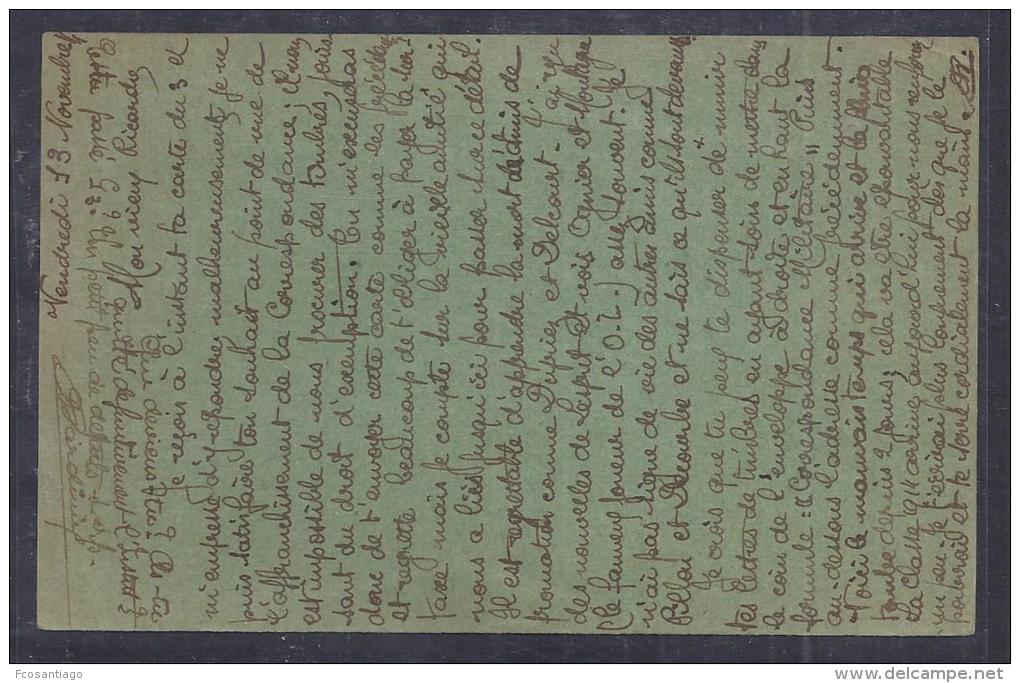 Vendredi 13 Novembre
Mon vieux Ricardo
Je reçois à l'instant ta carte du 3 et
m'empresse d'y répondre, malheureusement je ne
puis satisfaire ton souhait au point de vue de
l'affranchissement de la Correspondance; il nous
est impossible de nous procurer des timbres, jouis
sant du droit d'exemption. Tu m'excuseras
donc de t'envoyer cette carte comme les précédentes
et regrette beaucoup de t'obliger à payer la sur
taxe mais je compte sur la vieille amitié qui
nous a liés jusqu'ici pour passer sur ce détail.
Il est regrettable d'apprendre la mort de d'amis de
promotion comme Dupriez et Delcourt. J'ai reçu
des nouvelles de Lesprit et vois Ognier et Montagne
(le fameux joueur de l'O.L.) assez souvent. Je
n'ai pas ligne de vie des autres amis comme
Pillot et Decorbie et ne sais ce qu'ils sont devenus
Je crois que tu peux te dispenser de munir
tes lettres de timbres en ayant soin de mettre dans
le coin de l'enveloppe à droite et en haut la
formule: "Correspondance Militaire" Puis
au dessous l'adresse comme précédemment.
Voici le mauvais temps qui arrive et la pluie
tombe depuis 2 jours; cela va être épouvantable
La classe 1914 arrive aujourd'hui pour nous renforcer
un peu. Je t'écrirai plus longuement dès que je le
pourrai et te serre cordialement la main.
Fcosantiago
www.delcampe.net